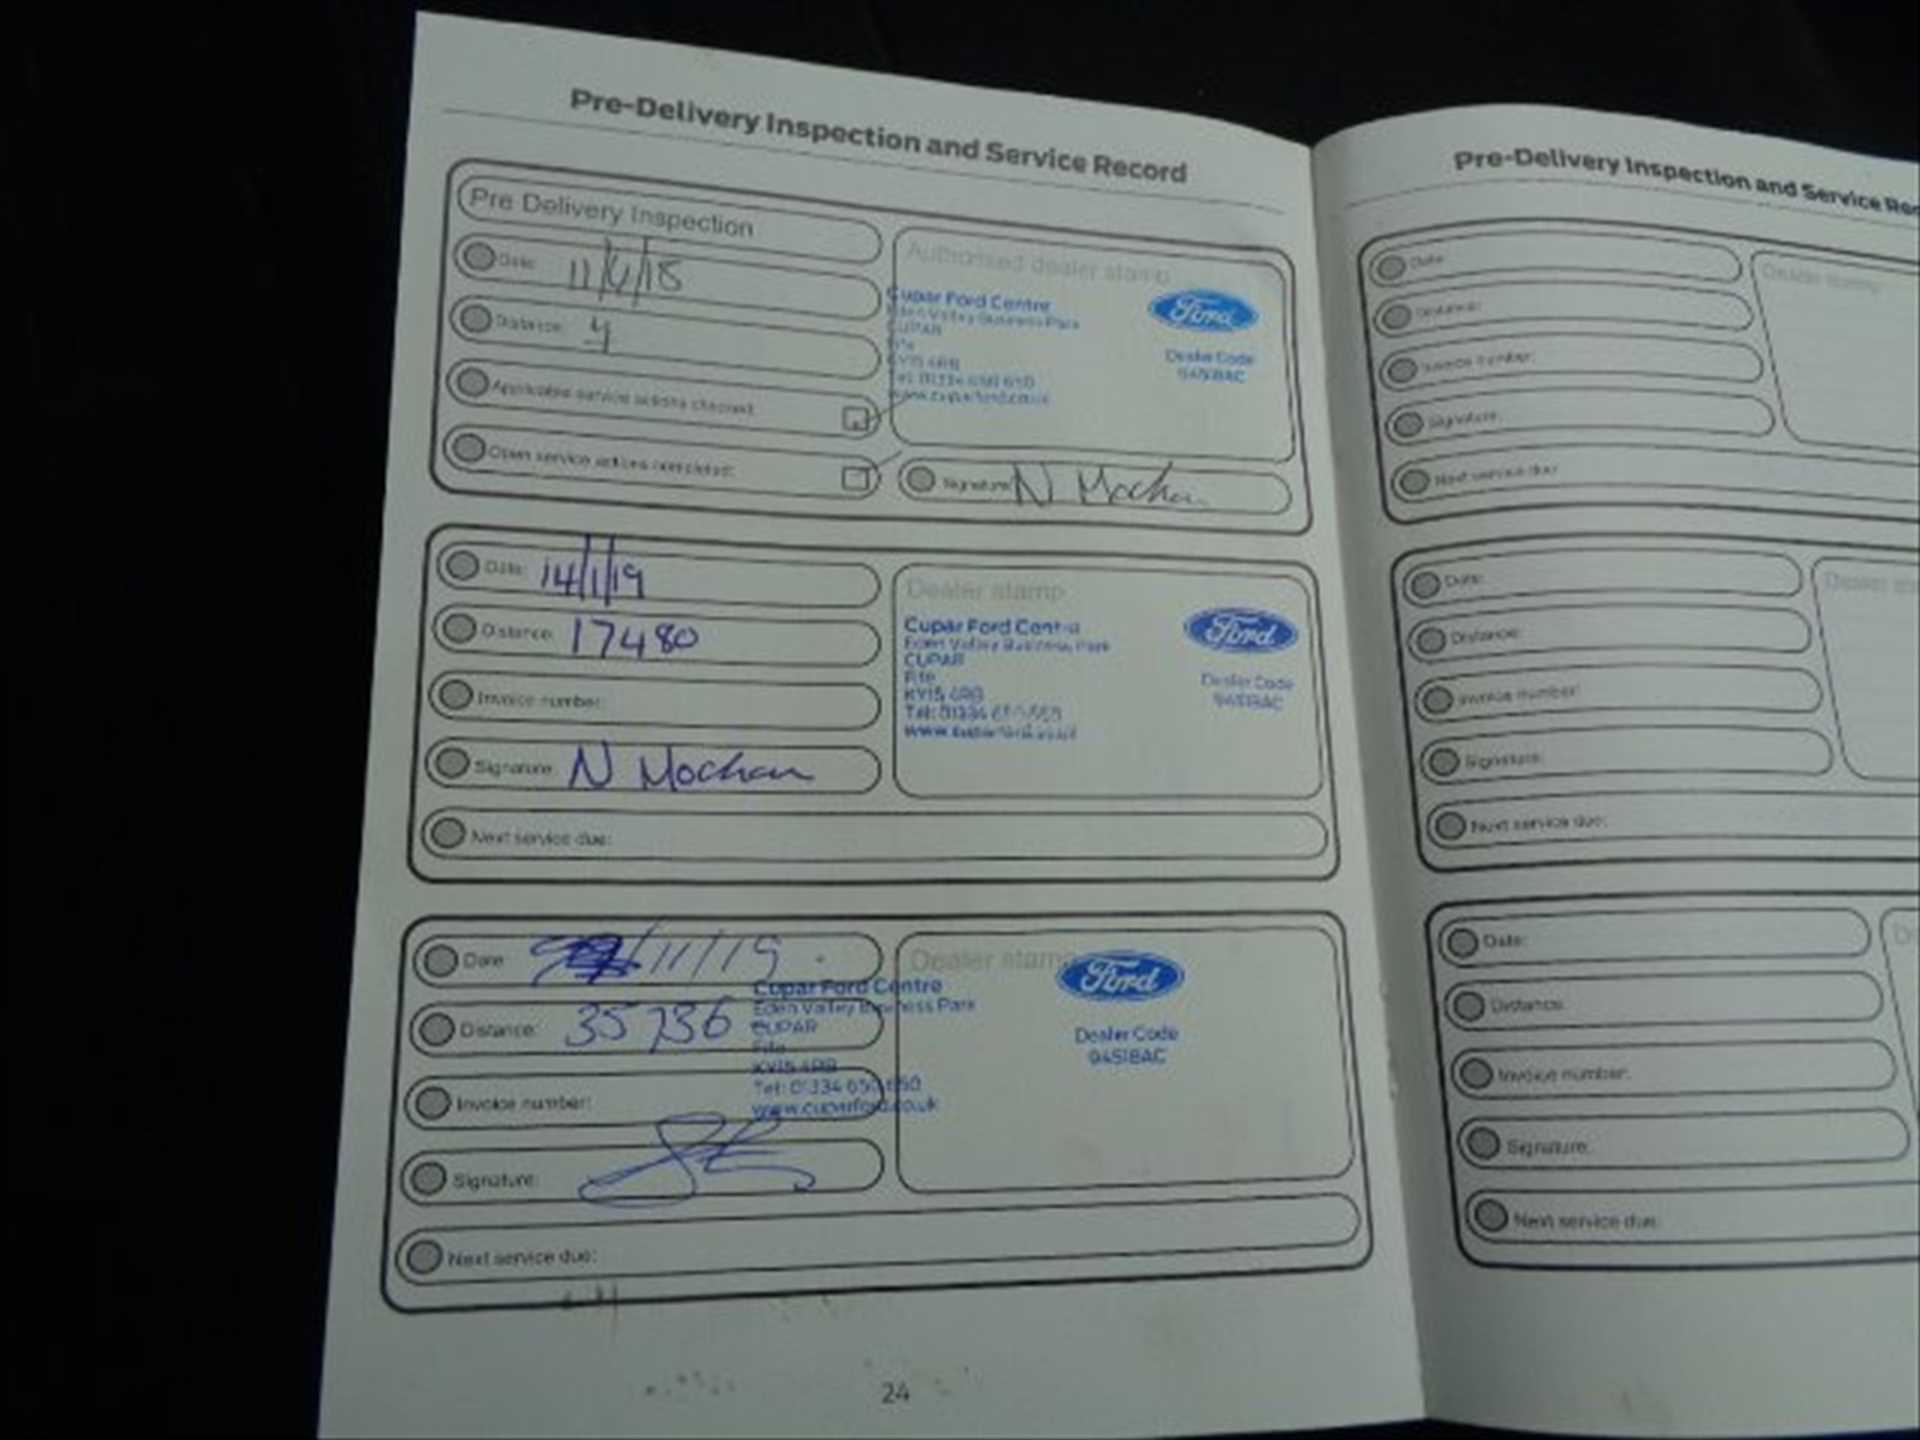 Pre-Delivery Inspection and Service Record
Pre Delivery Inspection
Date: 11/4/18
Distance: 4
Applicable service actions checked
Open service actions completed:
Authorised dealer stamp
Cupar Ford Centre
Eden Valley Business Park
CUPAR
Fife
KY15 4RB
Tel: 01334 650 650
www.cuparford.co.uk
Ford
Dealer Code
94518AC
Signature: N Mochan
Date: 14/1/19
Distance: 17480
Invoice number:
Signature: N Mochan
Next service due:
Dealer stamp
Cupar Ford Centre
Eden Valley Business Park
CUPAR
Fife
KY15 4RB
Tel: 01334 650 650
www.cuparford.co.uk
Ford
Dealer Code
94518AC
Date: /11/19
Distance: 35736
Invoice number:
Signature:
Next service due:
Dealer stamp
Cupar Ford Centre
Eden Valley Business Park
CUPAR
Fife
KY15 4RB
Tel: 01334 650 650
www.cuparford.co.uk
Ford
Dealer Code
94518AC
24
Pre-Delivery Inspection and Service Rec
Date:
Distance:
Invoice number:
Signature:
Next service due:
Dealer stamp
Date:
Distance:
Invoice number:
Signature:
Next service due:
Dealer
Date:
Distance:
Invoice number:
Signature:
Next service due: